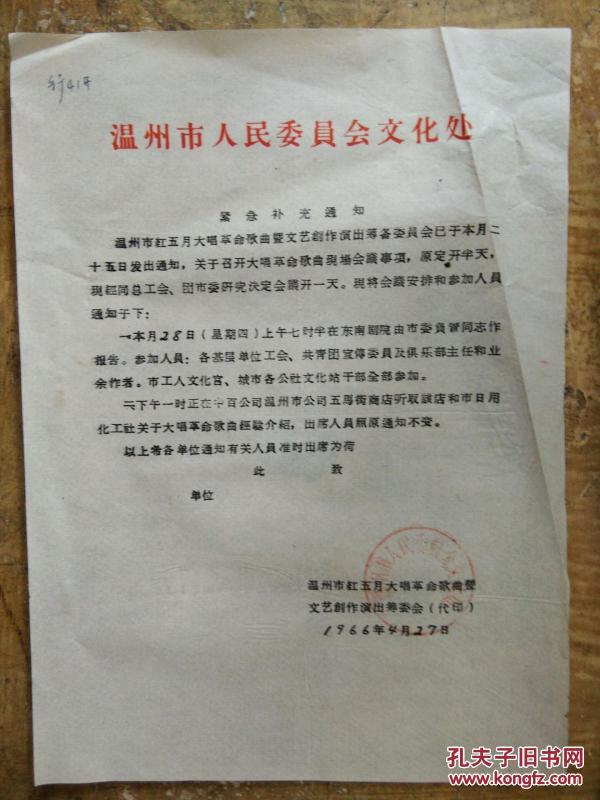 温州市人民委員会文化处
紧急补充通知
温州市紅五月大唱革命歌曲暨文艺創作演出筹备委員会已于本月二
十五日发出通知，关于召开大唱革命歌曲現場会議事項，原定开半天，
現經同总工会、团市委研究决定会議开一天。現将会議安排和参加人員
通知于下：
一本月28日（星期四）上午七时半在东南剧院由市委員曾同志作
报告。参加人員：各基层单位工会、共青团宣傳委員及俱乐部主任和业
余作者。市工人文化宮、城市各公社文化站干部全部参加。
二下午一时正在中百公司温州市公司五馬街商店听取該店和市日用
化工社关于大唱革命歌曲經驗介紹，出席人員照原通知不变。
以上希各单位通知有关人員准时出席为荷
此 致
单位
温州市紅五月大唱革命歌曲暨
文艺創作演出筹委会（代印）
1966年4月27日
孔夫子旧书网
www.kongfz.com